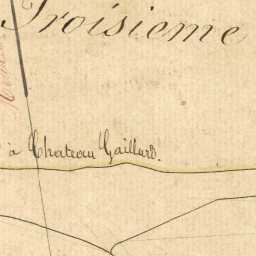 Troisieme
à Chateau Gaillard.